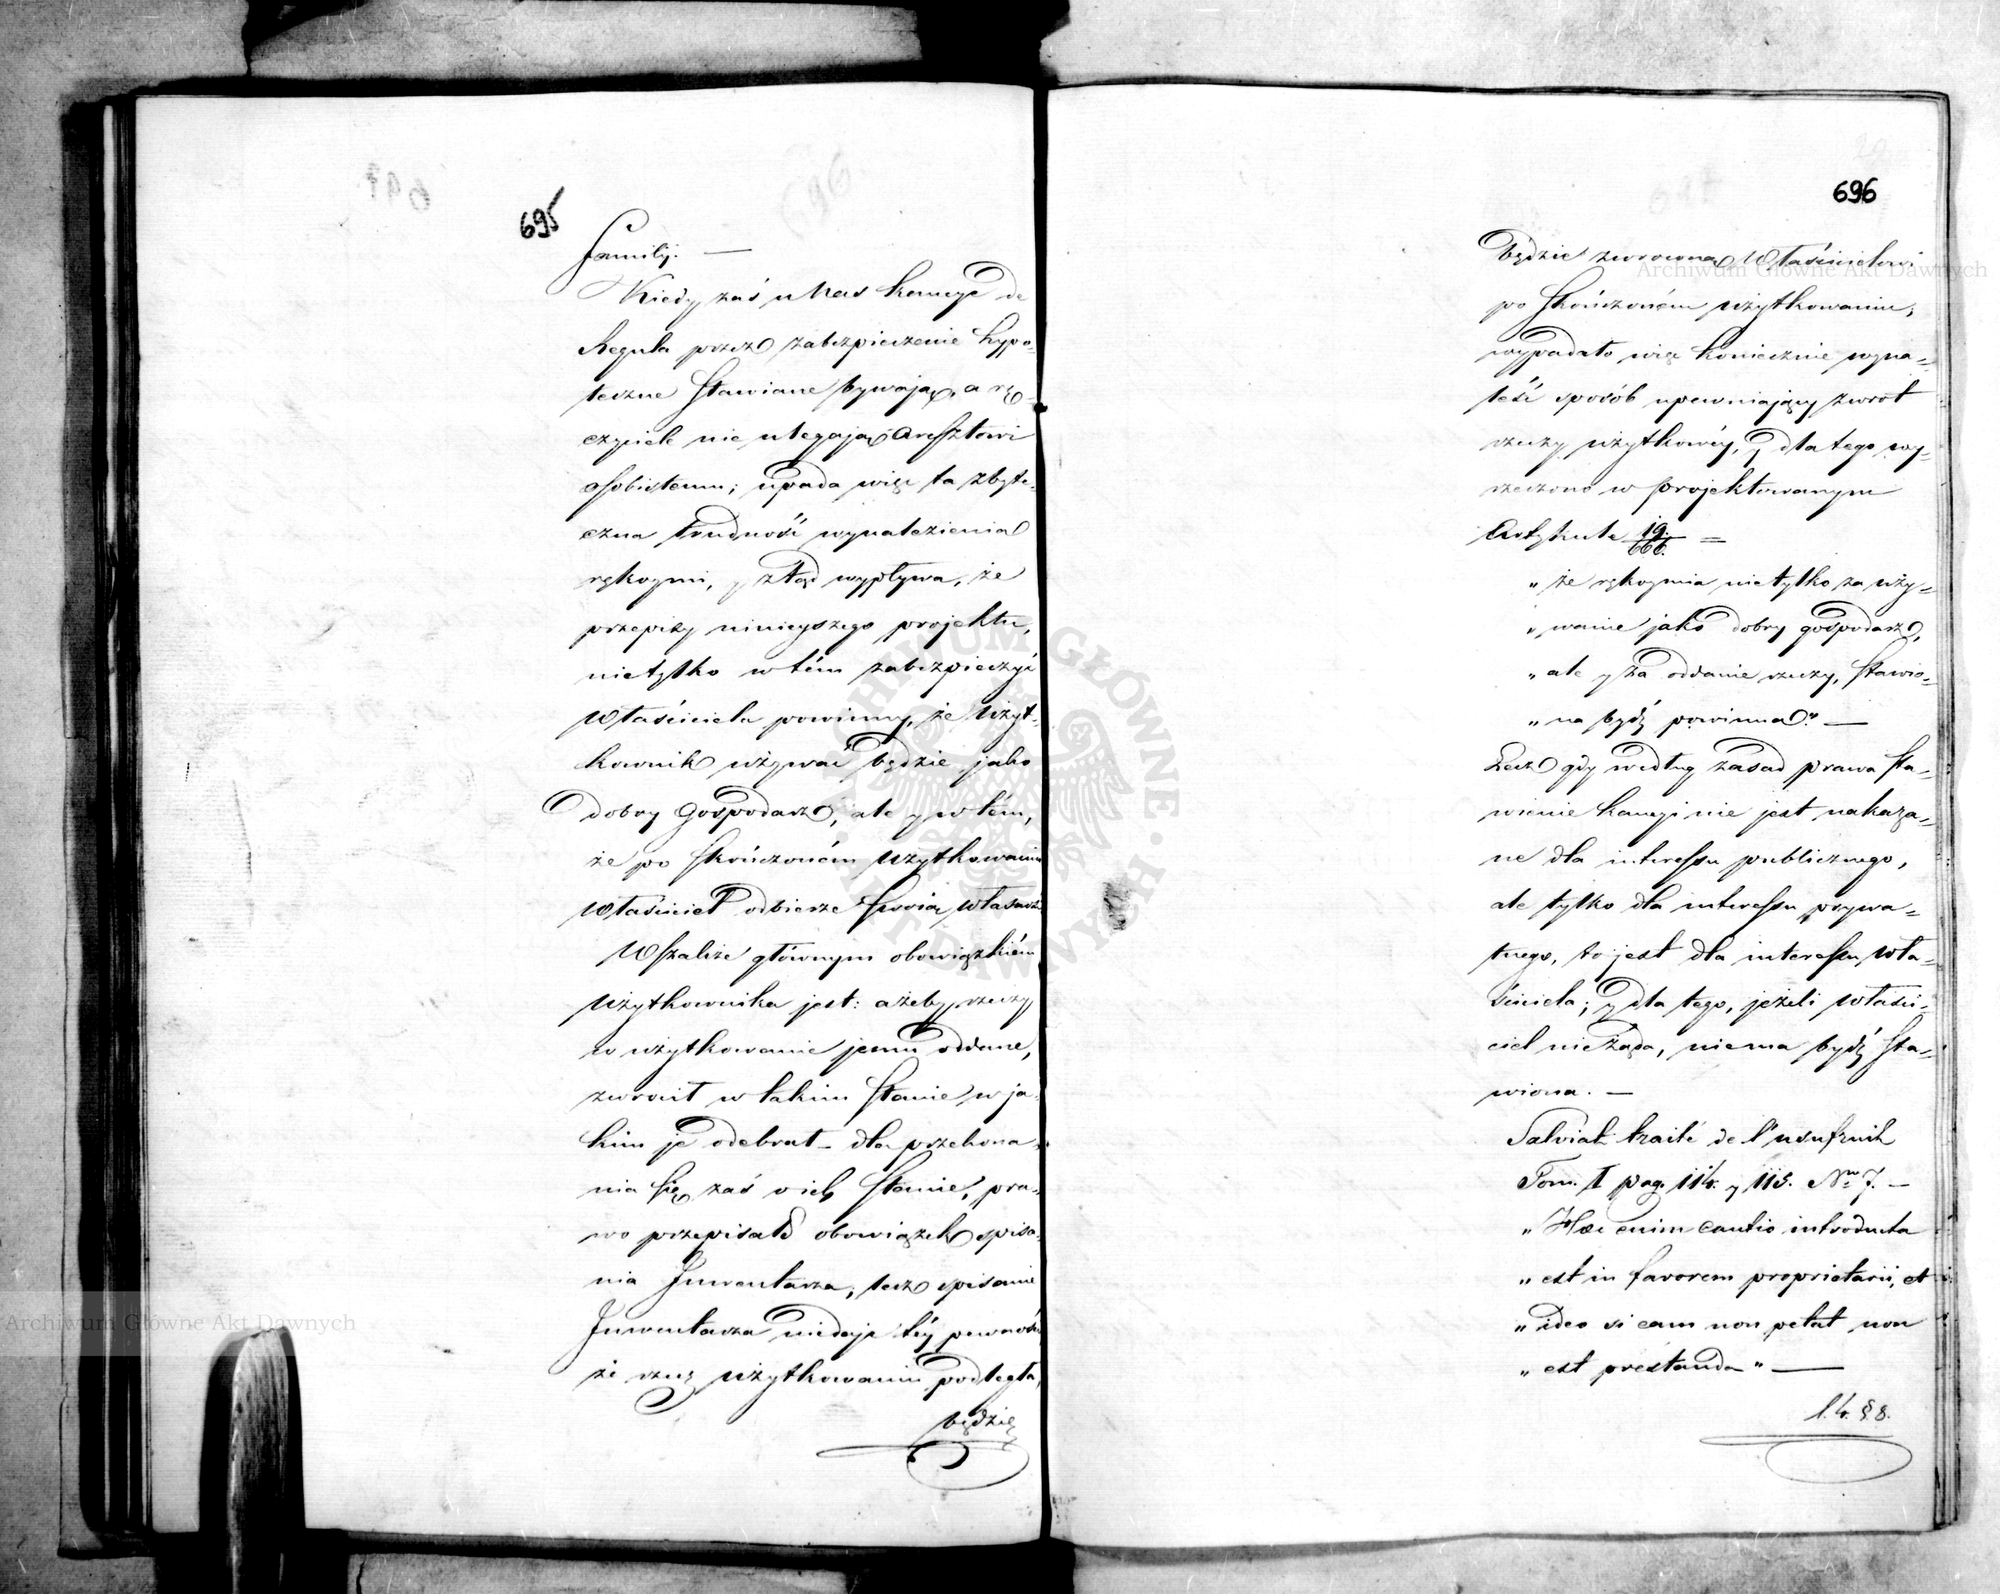 695
familij. —
Kiedy zaś u Nas kaucye de
Regula przez zabezpieczenie hypo-
teczne stawiane bywają, a rę-
czyciele nie ulegają aresztowi
osobistemu; upada więc ta zbyte-
czna trudność wynalezienia
rękoymi, y ztąd wypływa, że
przepisy ninieyszego projektu,
nietylko w tém zabezpieczyć
właściciela powinny, że użyt-
kownik używać będzie jako
dobry Gospodarz, ale y w tém,
że po skończoném użytkowaniu
właściciel odbierze swoią własność
Wszakże głównym obowiązkiém
użytkownika jest: ażeby rzeczy
w użytkowanie jemu oddane,
zwrócił w takim stanie w ja-
kim je odebrał – dla przekona-
nia się zaś o ich stanie, pra-
wo przepisało obowiązek spisa-
nia Inwentarza, lecz spisanie
Inwentarza niedaje téy pewności
że rzecz użytkowaniu podległa,
będzie
696
będzie zwrócona Właścicielowi
po skończoném użytkowaniu,
wypadało więc koniecznie wyna-
leść sposób upewniający zwrot
rzeczy użytkowéy, y dla tego wy-
rzeczono w projektowanym
Artykule 19/666. =
„ że rękoymia nietylko za uży-
„ wanie jako dobry gospodarz,
„ ale y za oddanie rzeczy, stawio-
„ na bydź powinna." —
Lecz gdy według zasad prawa sta-
wienie kaucyi nie jest nakaza-
ne dla interessu publicznego,
ale tylko dla interessu prywa-
tnego, to jest dla interessu wła-
ściciela; y dla tego, jeżeli właści-
ciel nieżąda, niema bydź sta-
wiona. —
Salviat traité de l'usufruit
Tom. I pag. 114. y 115. Nro 7. —
„ Hæc enim cautio introducta
„ est in favorem proprietarii, et
„ ideo si eam non petat non
„ est prestanda " —
l. 4. § 8.
Archiwum Główne Akt Dawnych
Archiwum Główne Akt Dawnych
ARCHIWUM GŁÓWNE AKT DAWNYCH